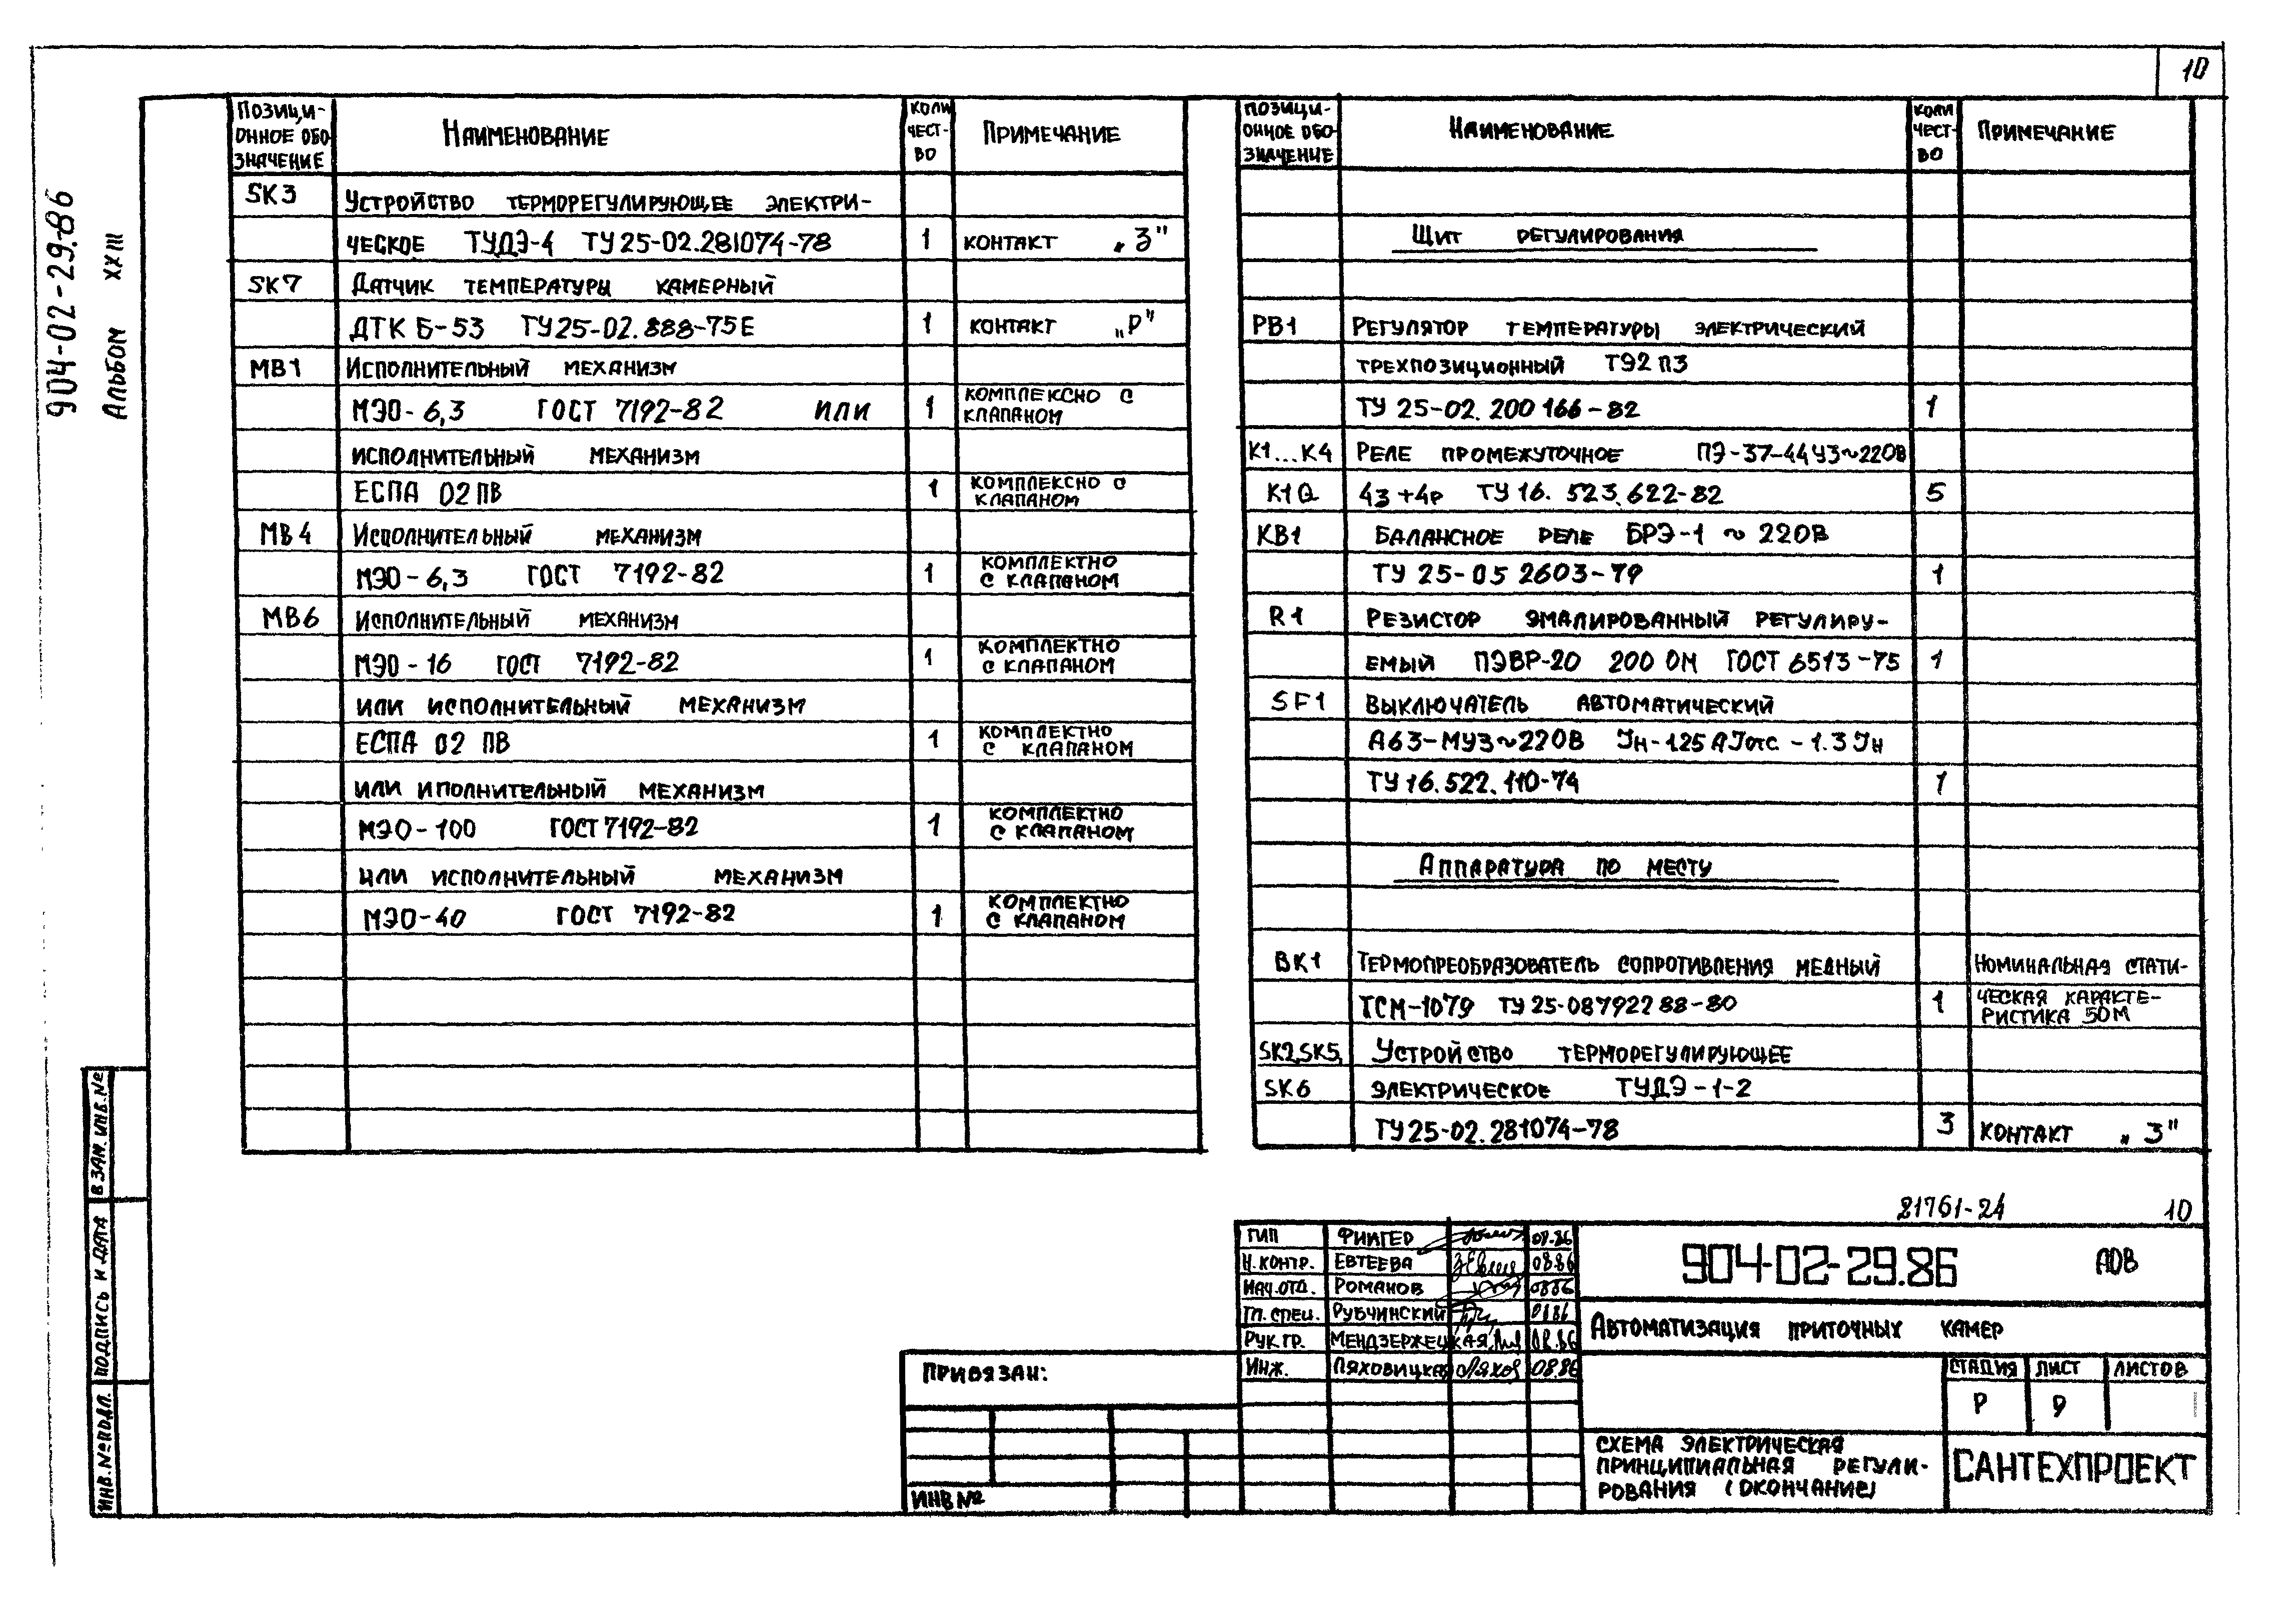 10
904-02-29.86
Альбом XXIII
Позици-
онное обо-
значение
Наименование
Коли
чест-
во
Примечание
SK3 Устройство терморегулирующее электри-
ческое ТУДЭ-4 ТУ25-02.281074-78 1 контакт „З"
SK7 Датчик температуры камерный
ДТКБ-53 ТУ25-02.888-75Е 1 контакт „Р"
МВ1 Исполнительный механизм
МЭО-6,3 ГОСТ 7192-82 или 1 комплексно с
клапаном
исполнительный механизм
ЕСПА 02ПВ 1 комплексно с
клапаном
МВ4 Исполнительный механизм
МЭО-6,3 ГОСТ 7192-82 1 комплектно
с клапаном
МВ6 Исполнительный механизм
МЭО-16 ГОСТ 7192-82 1 комплектно
с клапаном
или исполнительный механизм
ЕСПА 02 ПВ 1 комплектно
с клапаном
или иполнительный механизм
МЭО-100 ГОСТ 7192-82 1 комплектно
с клапаном
или исполнительный механизм
МЭО-40 ГОСТ 7192-82 1 комплектно
с клапаном
Позици-
онное обо-
значение
Наименование
Коли
чест-
во
Примечание
Щит регулирования
РВ1 Регулятор температуры электрический
трехпозиционный ТЭ2П3
ТУ 25-02.200166-82 1
К1...К4 Реле промежуточное ПЭ-37-44У3~220В
К1Q 4з+4р ТУ 16.523.622-82 5
КВ1 Балансное реле БРЭ-1 ~ 220В
ТУ 25-05 2603-79 1
R1 Резистор эмалированный регулиру-
емый ПЭВР-20 200 Ом ГОСТ 6513-75 1
SF1 Выключатель автоматический
А63-МУ3~220В Iн-1.25 А Iотс-1.3 Iн
ТУ16.522.110-74 1
Аппаратура по месту
ВК1 Термопреобразователь сопротивления медный Номинальная стати-
ТСМ-1079 ТУ 25-08792288-80 1 ческая характе-
ристика 50М
SK2,SK5, Устройство терморегулирующее
SK6 электрическое ТУДЭ-1-2
ТУ25-02.281074-78 3 контакт „З"
21761-24 10
ГИП Фингер 08.86
Н.контр. Евтеева 08.86
Нач.отд. Романов 08.86
Гл.спец. Рубчинский 08.86
Рук.гр. Мендзержецкая 08.86
Инж. Ляховицкая 08.86
904-02-29.86 АОВ
Автоматизация приточных камер
Стадия Лист Листов
Р 9
Схема электрическая
принципиальная регули-
рования (окончание)
САНТЕХПРОЕКТ
Привязан:
Инв №
Взам. инв.№
Подпись и дата
Инв.№подл.